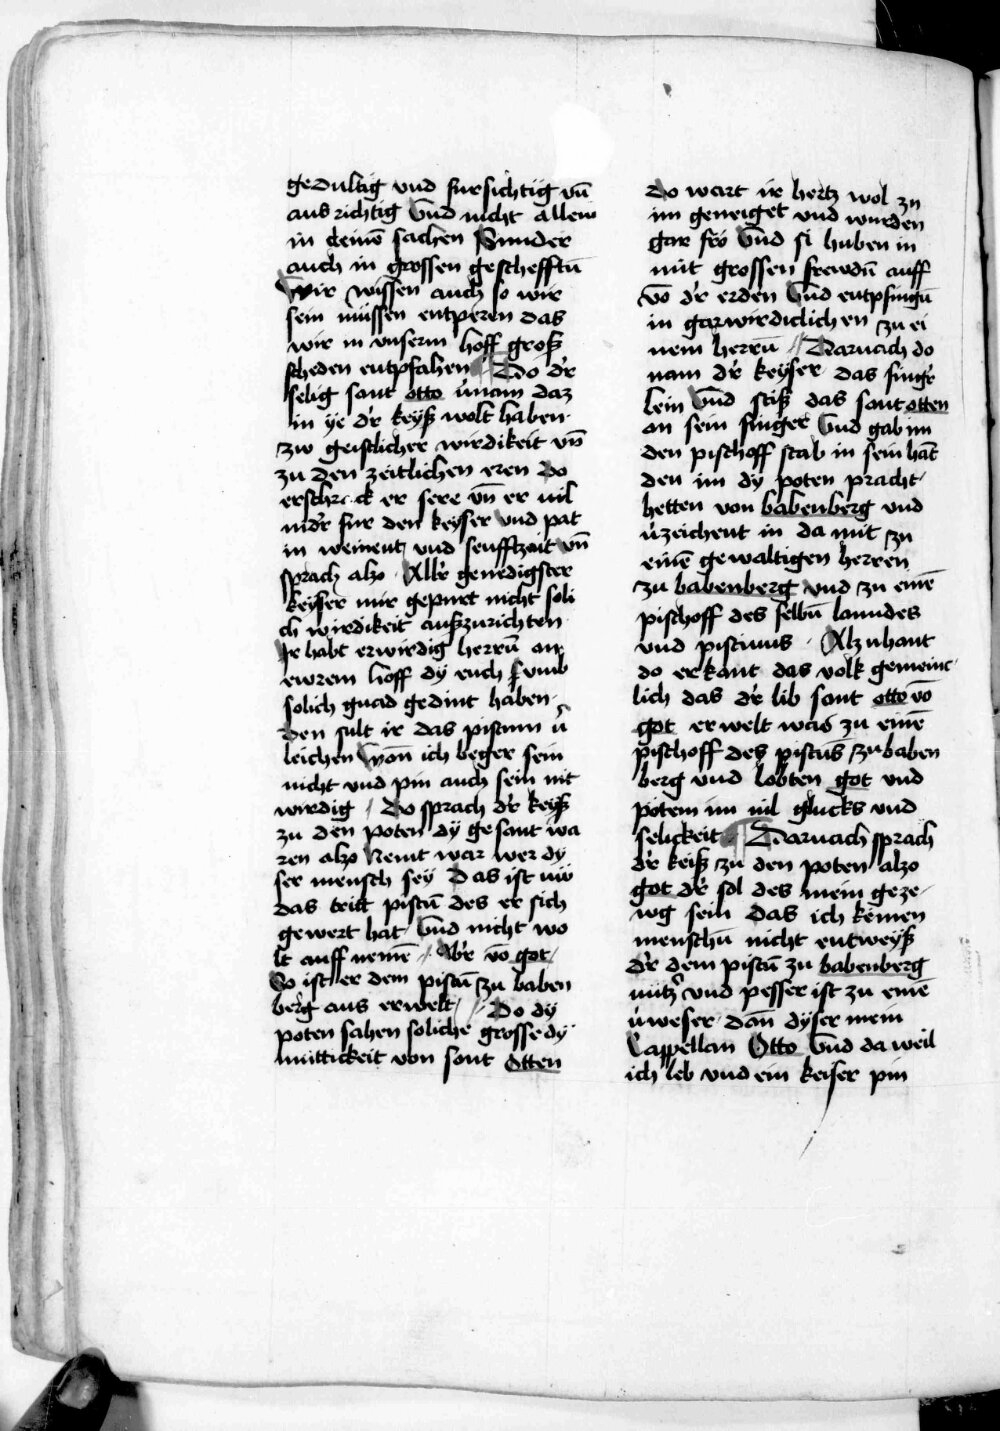 gedultig vnd fursichtig vn̄
aus richtig Vnd nicht allein
in deinē sachen Sunder
auch in grossen geschefftn̄
Wir wissen auch so wir
sein müssen entperen das
wir in vnserm hoff groß
scheden entpfahen Do dr̄
selig sant otto v̄nam daz
in ye dr̄ keyß wolt haben
zw geistlicher wirdikeit vn̄
zu den zeitlichen eren Do
erschrack er sere vn̄ er vil
nidr̄ fur den keyser vnd pat
in weinent vnd seufftzent vn̄
sprach also Allr̄ genedigster
keyser mir gepurt nicht soli
ch wirdikeit auszurichten
Ir habt erwirdig herrn̄ an
ewrem hoff dy euch
solich gnad gedint haben
den sult ir das pistum v̄
leichen Won̄ ich beger sein
nicht vnd pin auch sein nit
wirdig Do sprach dr̄ keyß
zu den poten dy gesant wa
ren also Nemt war wer dy
ser mensch sey Das ist nw
das dritt pistū des er sich
gewert hat Vnd nicht wo
lt auff nemē Abr̄ vō got
So ist er dem pistū zu baben
berg aus erwelt Do dy
poten sahen soliche grosse dy
muttickeit von sant Otten
Do wart ir hertz wol zu
im geneiget vnd wurden
gar fro Vnd si huben in
mit grossen frewdn̄ auff
vō dr̄ erden Vnd entpfingn̄
in garwirdiclichen zu ei
nem herrn̄ Darnach do
nam dr̄ keyser das fingr̄
lein Vnd stiß das sant otten
an sein finger Vnd gab im
den pischoff stab in sein hāt
den im dy poten pracht
hetten von babenberg vnd
v̄zeichent in da mit zu
einē gewaltigen herren
zu babenberg vnd zu einē
pischoff des selbn̄ lanndes
vnd pistums Alzuhant
do erkant das volk gemeinc
lich das dr̄ lib sant otto vō
got erwelt was zu einē
pischoff des pistūs zu baben
berg vnd lobten got vnd
potem im vil glucks vnd
selickeit Darnach sprach
dr̄ keiß zu den poten also
got dr̄ sol des mein geze
wg sein das ich keinen
menschn̄ nicht entweyß
dr̄ dem pistū zu babenberg
nützr̄ vnd pesser ist zu einē
v̄weser dan̄ dyser mein
Cappellan Otto Vnd da weil
ich leb vnd ein keiser pin